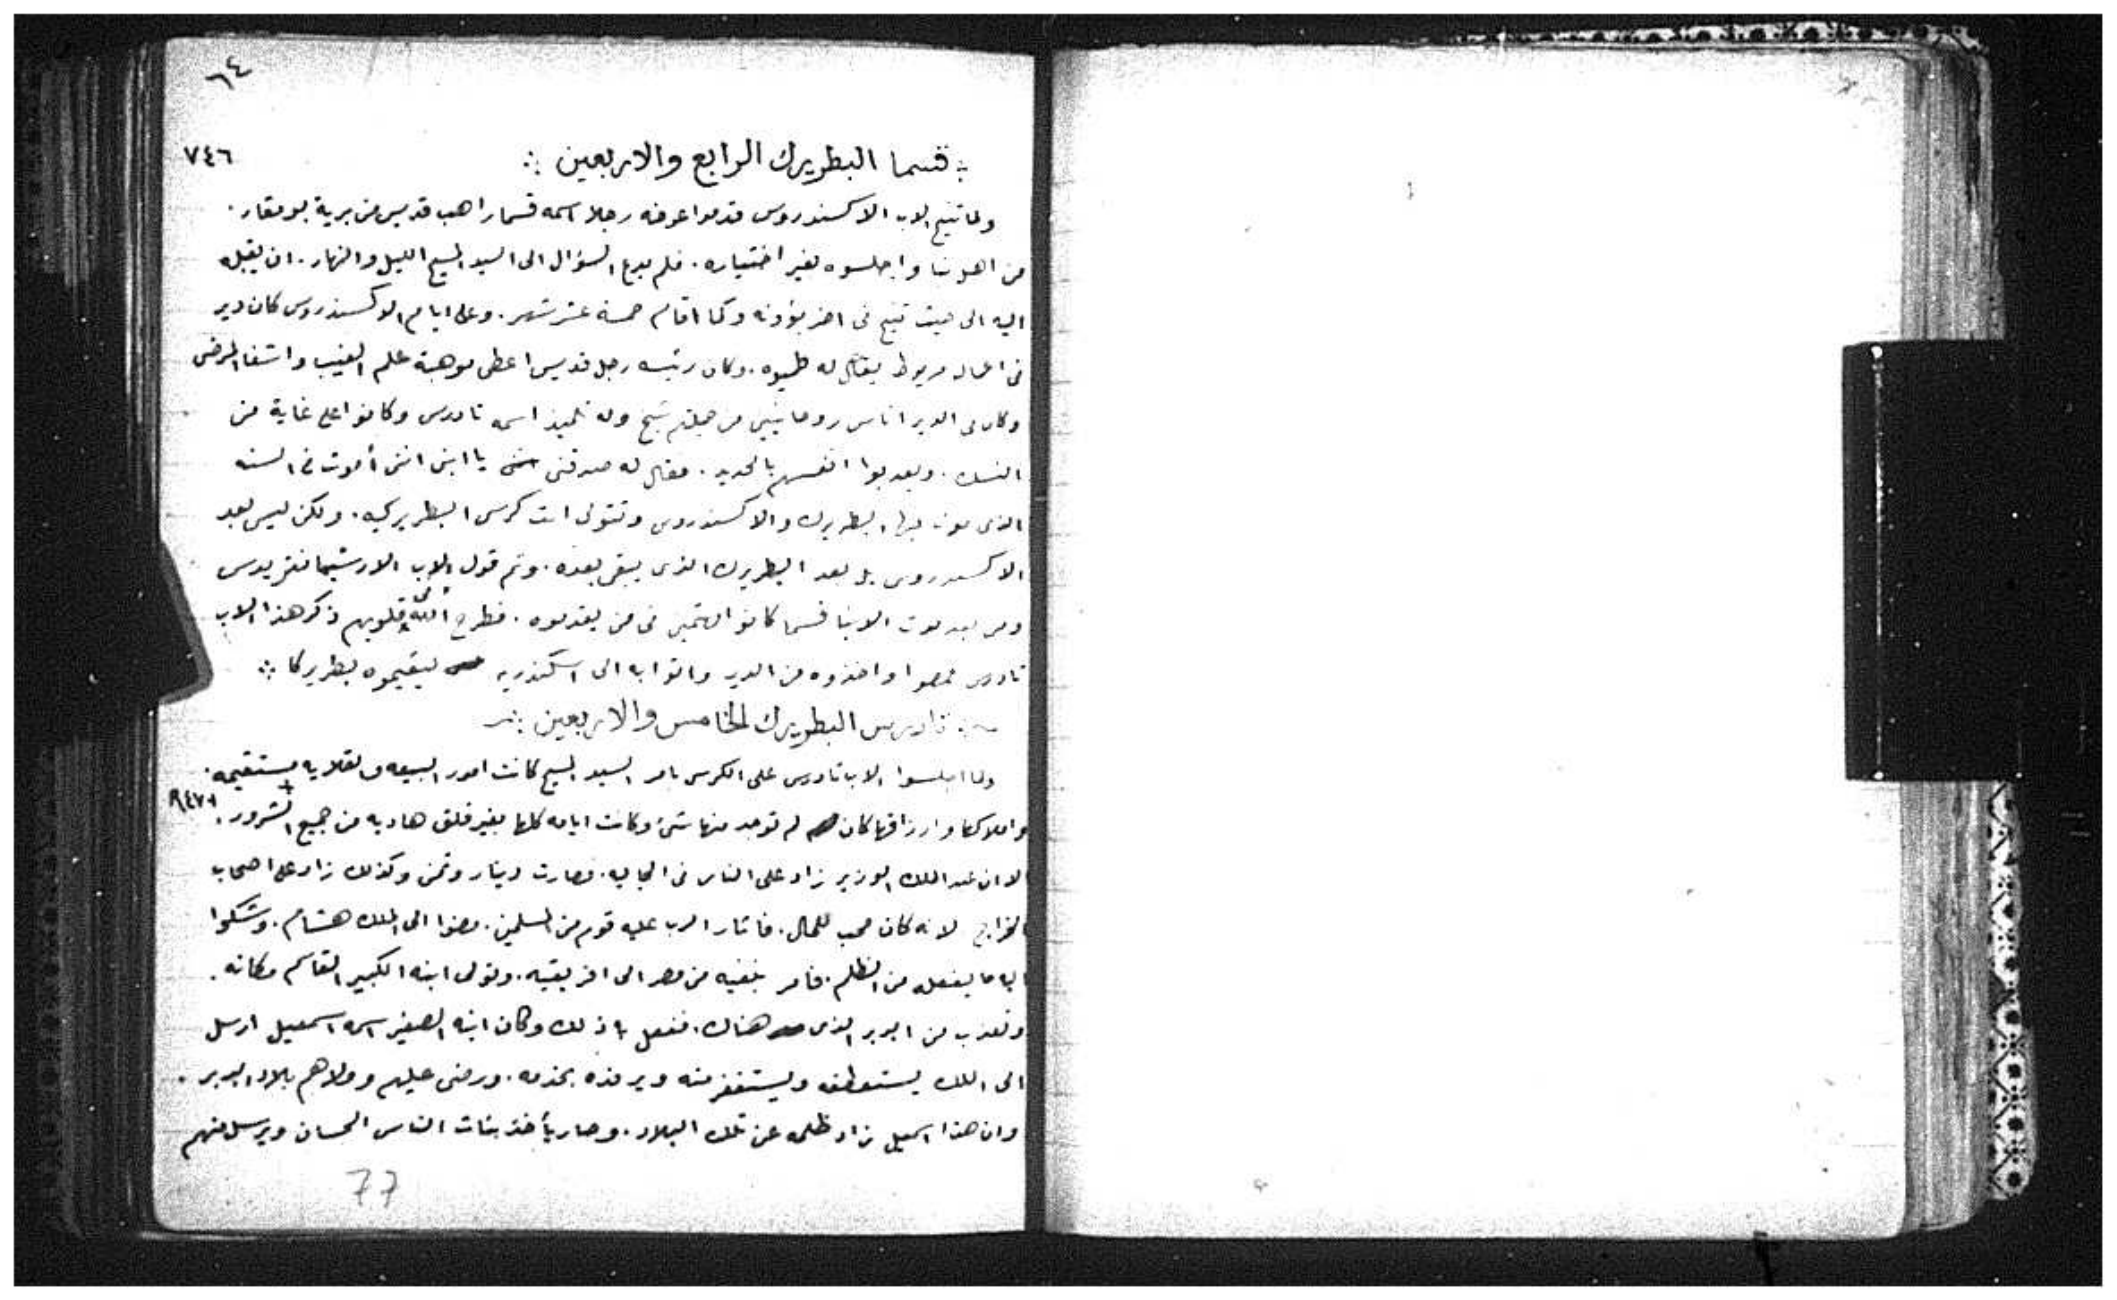 ٦٤
∴ قسما البطريرك الرابع والاربعين ∴
٧٤٦
ولما تنيح الاب الاكسندروس قدموا عوضه رجلا اسمه قسما راهب قديس من برية بو مقار .
من اهل بنا واجلسوه بغير اختياره . فلم يدع السؤال الى السيد المسيح الليل والنهار . ان يقبله
اليه الى حيث تنيح فى اخر بؤونه وكما اقام خمسة عشر شهر . وعلى ايام الاكسندروس كان دير
فى اعمال مريوط يقال له طمنوه . وكان رئيسه رجل قديس اعطى موهبة علم الغيب واشفا المرضى
وكان فى الدير اناس روحانيين من جملتهم شيخ وله تلميذ اسمه تادرس وكانوا على غاية من
النسك . ويعذبوا انفسهم بالحديد . فقال له صدقنى يا ابنى اننى أموت فى السنه
الذى يموت فيها البطريرك والاكسندروس وتتولى انت كرسى البطريركيه . ولكن ليس بعد
الاكسندروس بل بعد البطريرك الذى يبقى بعده . وتم قول الاب الارشيمانتريدس
ومن بعد موت الانبا قسما كانوا مهتمين فى من يقدموه . فطرح الله فى قلوبهم ذكر هذا الاب
تادرس فمضوا واخذوه من الدير واتوا به الى اسكندريه ليقيموه بطريركا ∴
∴ تادرس البطريرك الخامس والاربعين ∴
ولما اجلسوا الاب تادرس على الكرسى بامر السيد المسيح كانت امور البيعه والقلايه مستقيمه .
واملاكها وارزاقها كان لم توجد منها شئ وكانت ايامه كلها بغير قلق هاديه من جميع الشرور .
الا ان عبد الملك الوزير زاد على الناس فى الجاليه . فصارت دينار وثمن وكذلك زاد على اصحاب
الخراج لانه كان محب للمال . فاثار الرب عليه قوم من المسلمين . مضوا الى الملك هشام . وشكوا
اليه ما يفعله من الظلم . فامر بنفيه من مصر الى افريقيه . وتولى ابنه الكبير القاسم مكانه .
وتعذب من البربر الذى هناك . ففعل به ذلك وكان ابنه الصغير اسمه اسمعيل ارسل
الى الملك يستعطفه ويستغفر منه ويرفده بخدمه . ورضى عليهم وولاهم بلاد البربر .
وان هذا اسمعيل زاد ظلمه عن تلك البلاد . وصار يأخذ بنات الناس الحسان ويرسل منهم
77